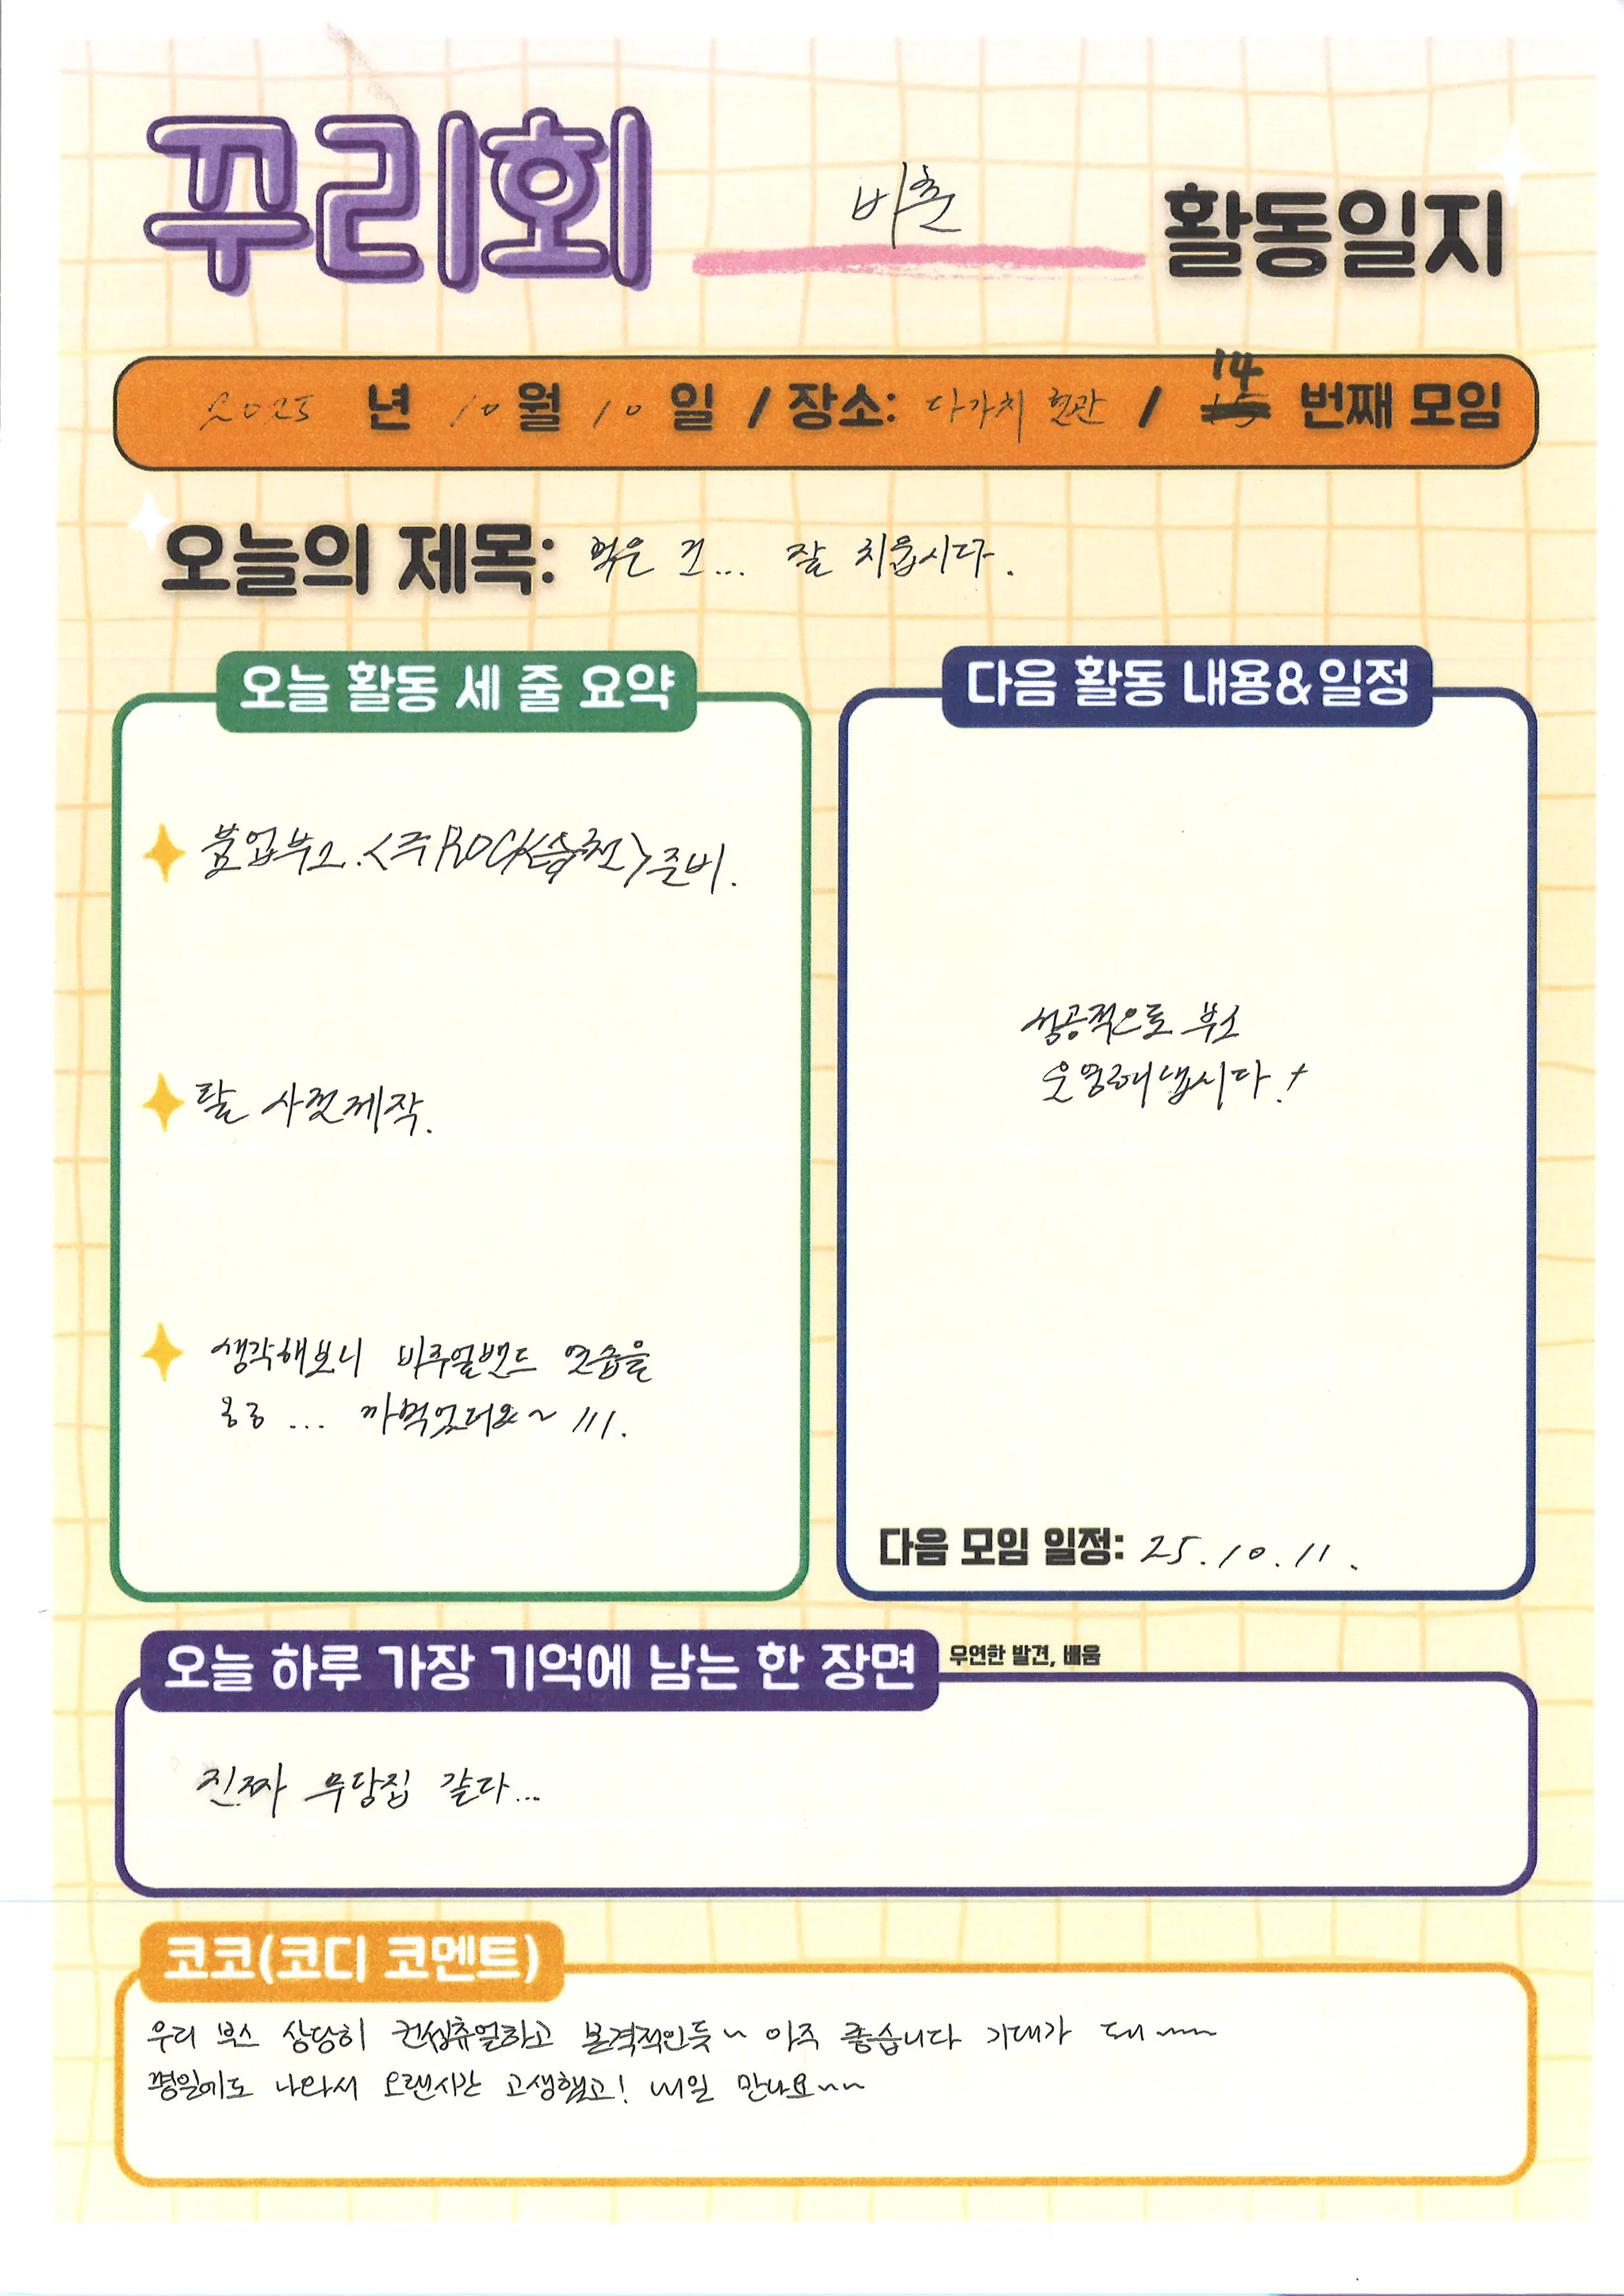 꾸리회 비춘 활동일지
2025 년 10 월 10 일 / 장소: 다가치 현관 / 14 번째 모임
오늘의 제목: 먹은 건... 잘 치웁시다.
오늘 활동 세 줄 요약
붐업부스. <주ROCK습천> 준비.
탈 사전제작.
생각해보니 비주얼밴드 연습을
ㅎㅎ ... 까먹었더요~ ///.
다음 활동 내용&일정
성공적으로 부스
운영해냅시다!
다음 모임 일정: 25.10.11.
오늘 하루 가장 기억에 남는 한 장면 우연한 발견, 배움
진짜 무당집 같다...
코코(코디 코멘트)
우리 부스 상당히 컨셉츄얼하고 본격적인듯~ 아주 좋습니다 기대가 돼~~~
평일에도 나와서 오랜시간 고생했고! 내일 만나요~~